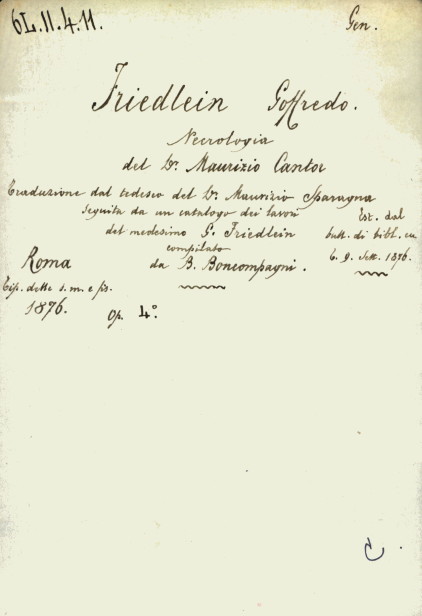 6L.11.4.11.
Gen.
Friedlein Goffredo.
Necrologia
del Dr. Maurizio Cantor
Traduzione dal tedesco del Dr. Maurizio Sparagna
seguita da un catalogo dei lavori
del medesimo G. Friedlein
compilato
da B. Boncompagni.
Est. dal
bull. di bibl. ecc
t. 9. Sett. 1876.
Roma
Tip. delle s. m. e fis.
1876.
Op. 4°.